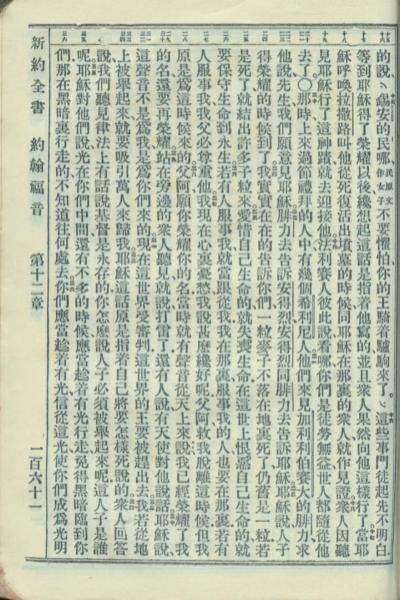 的說錫安的民哪不要懼怕你的王騎着驢駒來了這些事門徒起先不明白
等到耶穌得了榮耀以後纔想起這話是指着他寫的並且衆人果然向他這樣行了當耶
穌呼喚拉撒路叫他從死復活出墳墓的時候同耶穌在那裏的衆人就作見證衆人因聽
見耶穌行了這神蹟就去迎接他法利賽人彼此說看哪你們是徒勞無益世人都隨從他
去了○那時上來過節禮拜的人中有幾個希利尼人他們來見加利利伯賽大的腓力求
他說先生我們願意見耶穌腓力去告訴安得烈安得烈同腓力去告訴耶穌耶穌說人子
得榮耀的時候到了我實實在在的告訴你們一粒麥子不落在地裏死了仍舊是一粒若
是死了就結出許多子粒來愛惜自己生命的就失喪生命在這世上恨惡自己生命的就
要保守生命到永生若有人服事我就當跟從我我在那裏服事我的人也要在那裏若有
人服事我我父必尊重他我現在心裏憂愁我說甚麼纔好呢父阿救我脫離這時候但我
原是爲這時候來的父阿願你榮耀你的名當時就有聲音從天上來說我已經榮耀了我
的名還要再榮耀站在旁邊的衆人聽見就說打雷了還有人說有天使對他說話耶穌說
這聲音不是爲我是爲你們來的現在這世界受審判這世界的王要被趕出去我若從地
上被舉起來就要吸引萬人來歸我耶穌這話原是指着自己將要怎樣死說的衆人回答
說我們聽見律法上有話說基督是永存的你怎麼說人子必須被舉起來呢這人子是誰
呢耶穌對他們說光在你們中間還有不多的時候應當趁着有光行走免得黑暗臨到你
們那在黑暗裏行走的不知道往何處去你們應當趁着有光信從這光使你們成爲光明
新約全書 約翰福音 第十二章 一百六十一